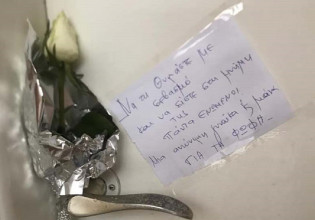 Να τη θυμάστε με
σεβασμό
και να είστε στη μνήμη
της
πάντα ενωμένοι
Μια ανώνυμη μαμά
ΓΙΑ ΤΗ ΦΩΦΗ